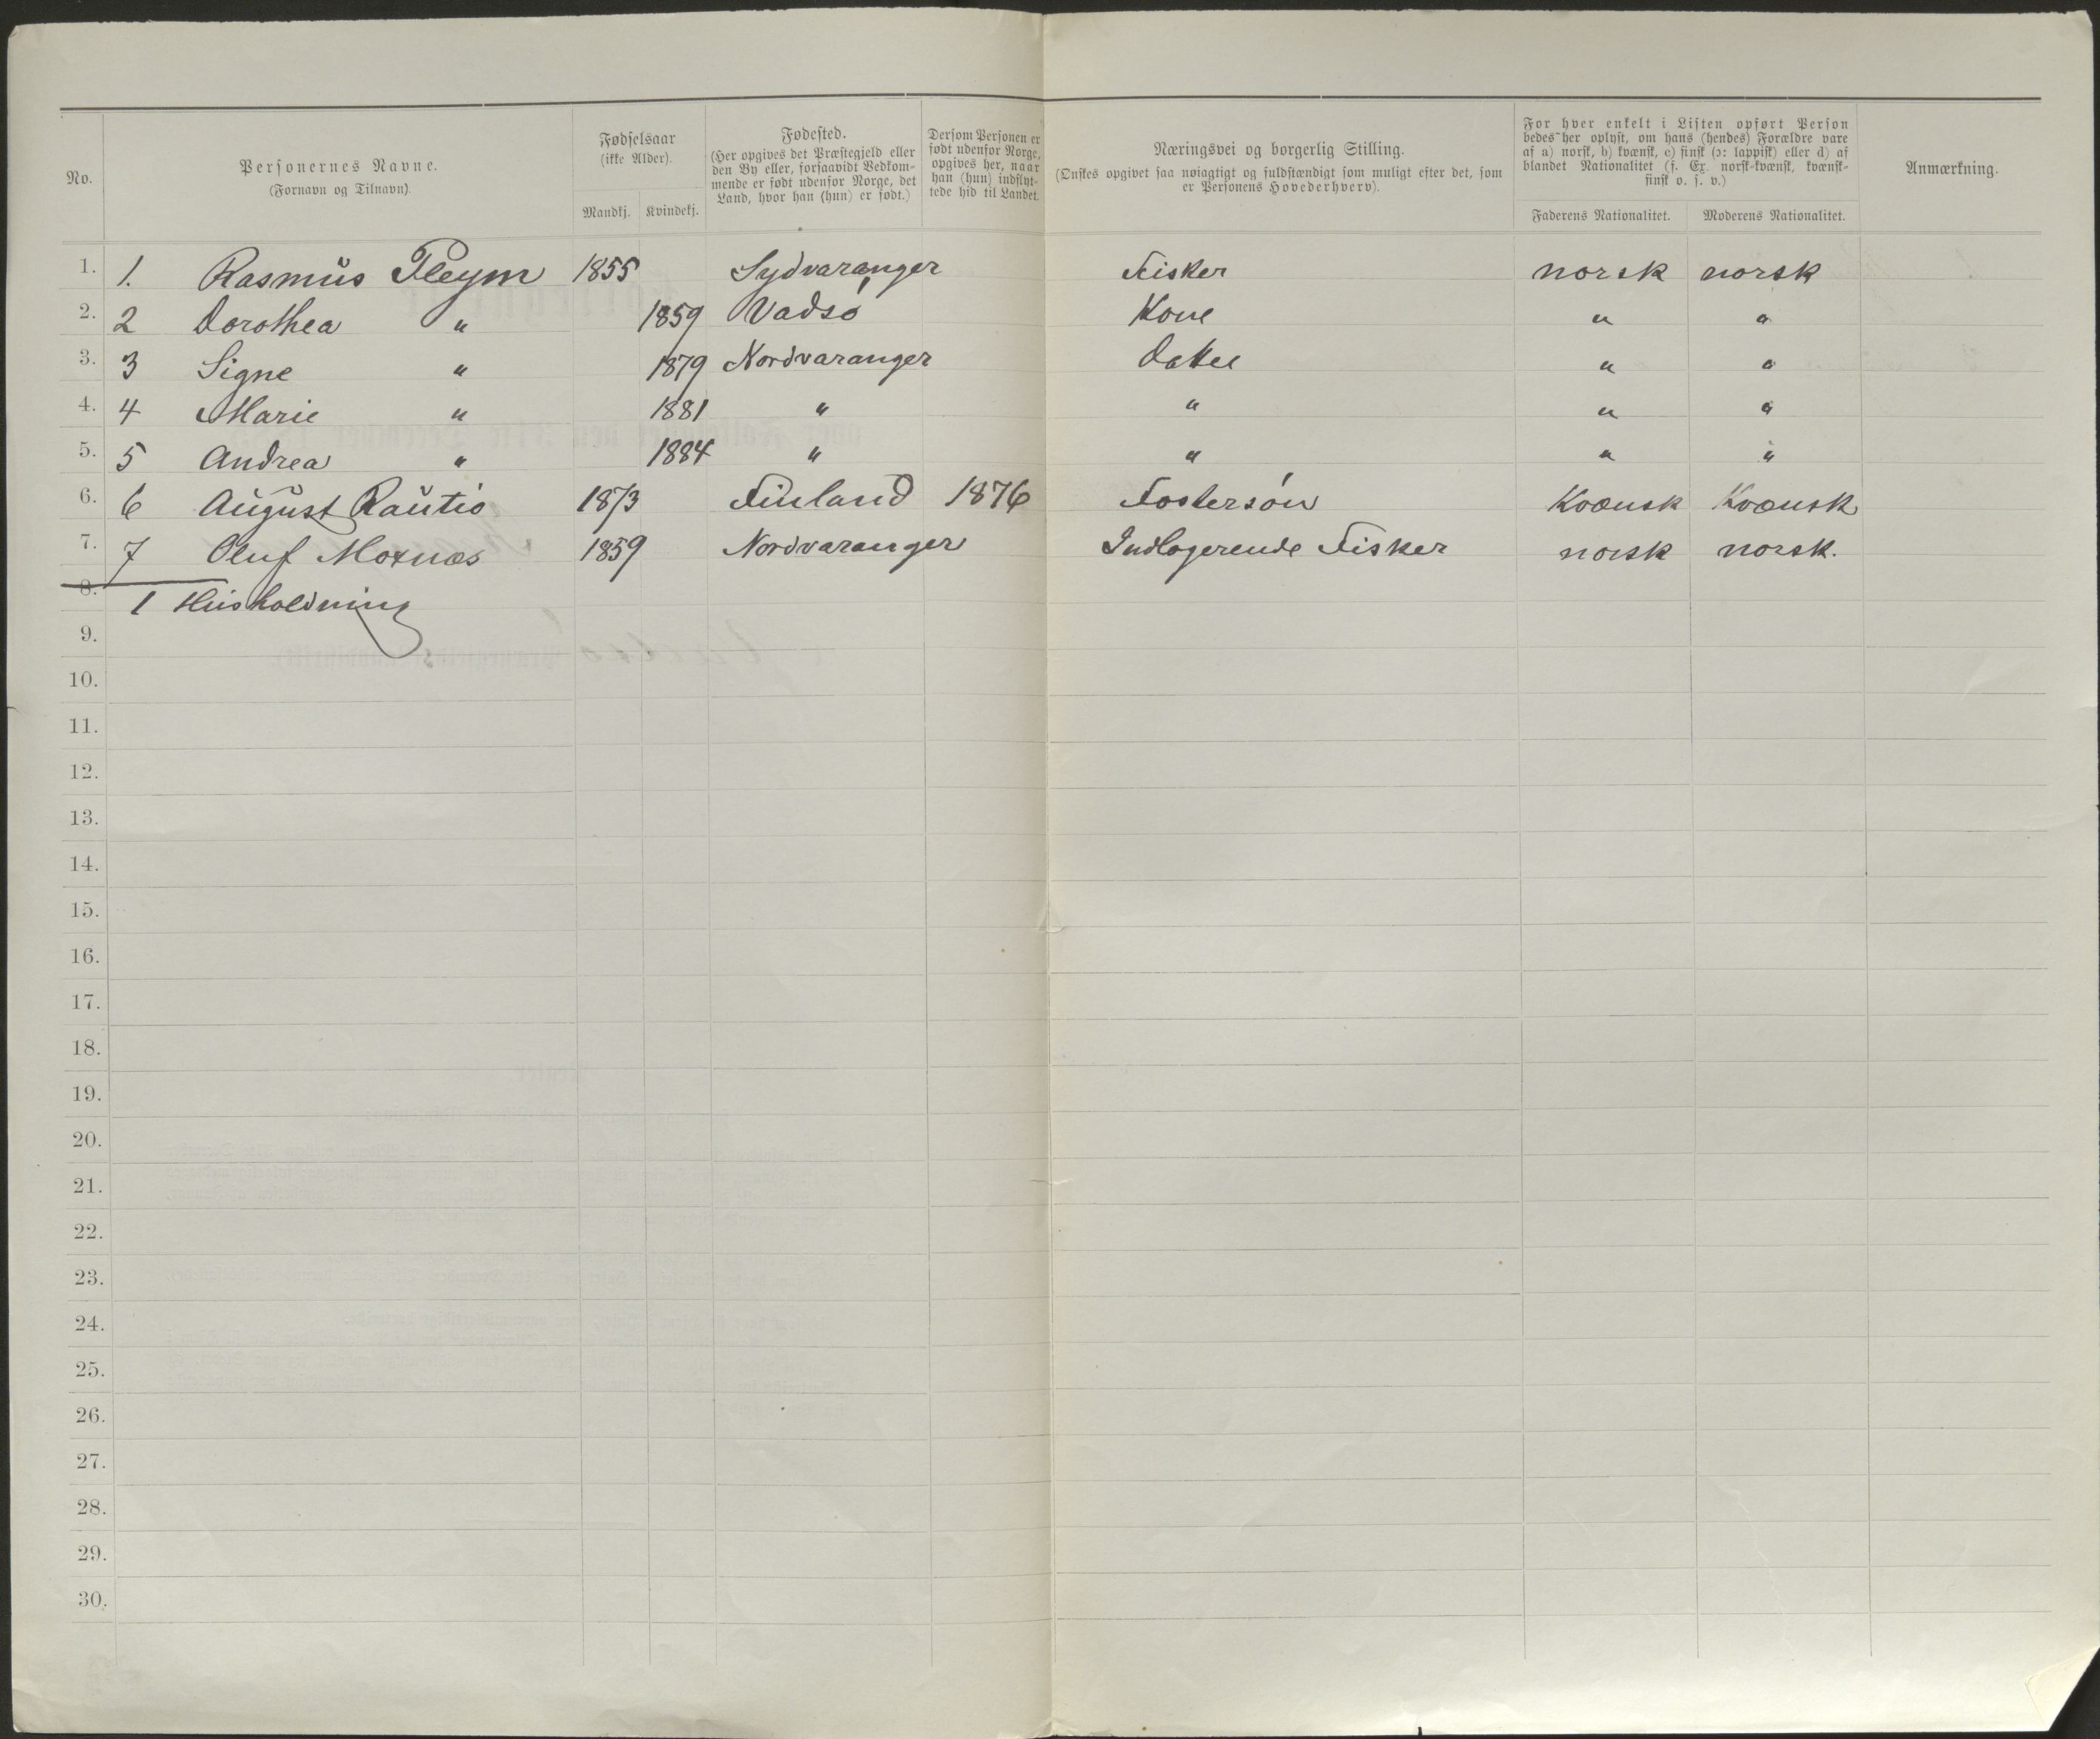 No.
Personernes Navne.
(Fornavn og Tilnavn).
Fødselsaar
(ikke Alder).
Mandkj. Kvindekj.
Fødested.
(Her opgives det Præstegjeld eller
den By eller, forsaavidt Vedkom-
mende er født udenfor Norge, det
Land, hvor han (hun) er født.)
Dersom Personen er
født udenfor Norge,
opgives her, naar
han (hun) indflyt-
tede hid til Landet.
Næringsvei og borgerlig Stilling.
(Ønskes opgivet saa nøiagtigt og fuldstændigt som muligt efter det, som
er Personens Hovederhverv).
For hver enkelt i Listen opført Person
bedes her oplyst, om hans (hendes) Forældre vare
af a) norsk, b) kvænsk, c) finsk (ɔ: lappisk) eller d) af
blandet Nationalitet (f. Ex. norsk-kvænsk, kvænsk-
finsk o. s. v.)
Faderens Nationalitet. Moderens Nationalitet.
Anmærkning.
1. 1. Rasmus Pleym 1855 Sydvaranger Fisker norsk norsk
2. 2 Dorothea " 1859 Vadsø Kone " "
3. 3 Signe " 1879 Nordvaranger Datter " "
4. 4 Marie " 1881 " " " "
5. 5 Andrea " 1884 " " " "
6. 6 August Rautio 1873 Finland 1876 Fostersøn Kvænsk Kvænsk
7. 7 Oluf Moxnæs 1859 Nordvaranger Indlogerende Fisker norsk norsk.
8. 1 Husholdning
9.
10.
11.
12.
13.
14.
15.
16.
17.
18.
19.
20.
21.
22.
23.
24.
25.
26.
27.
28.
29.
30.